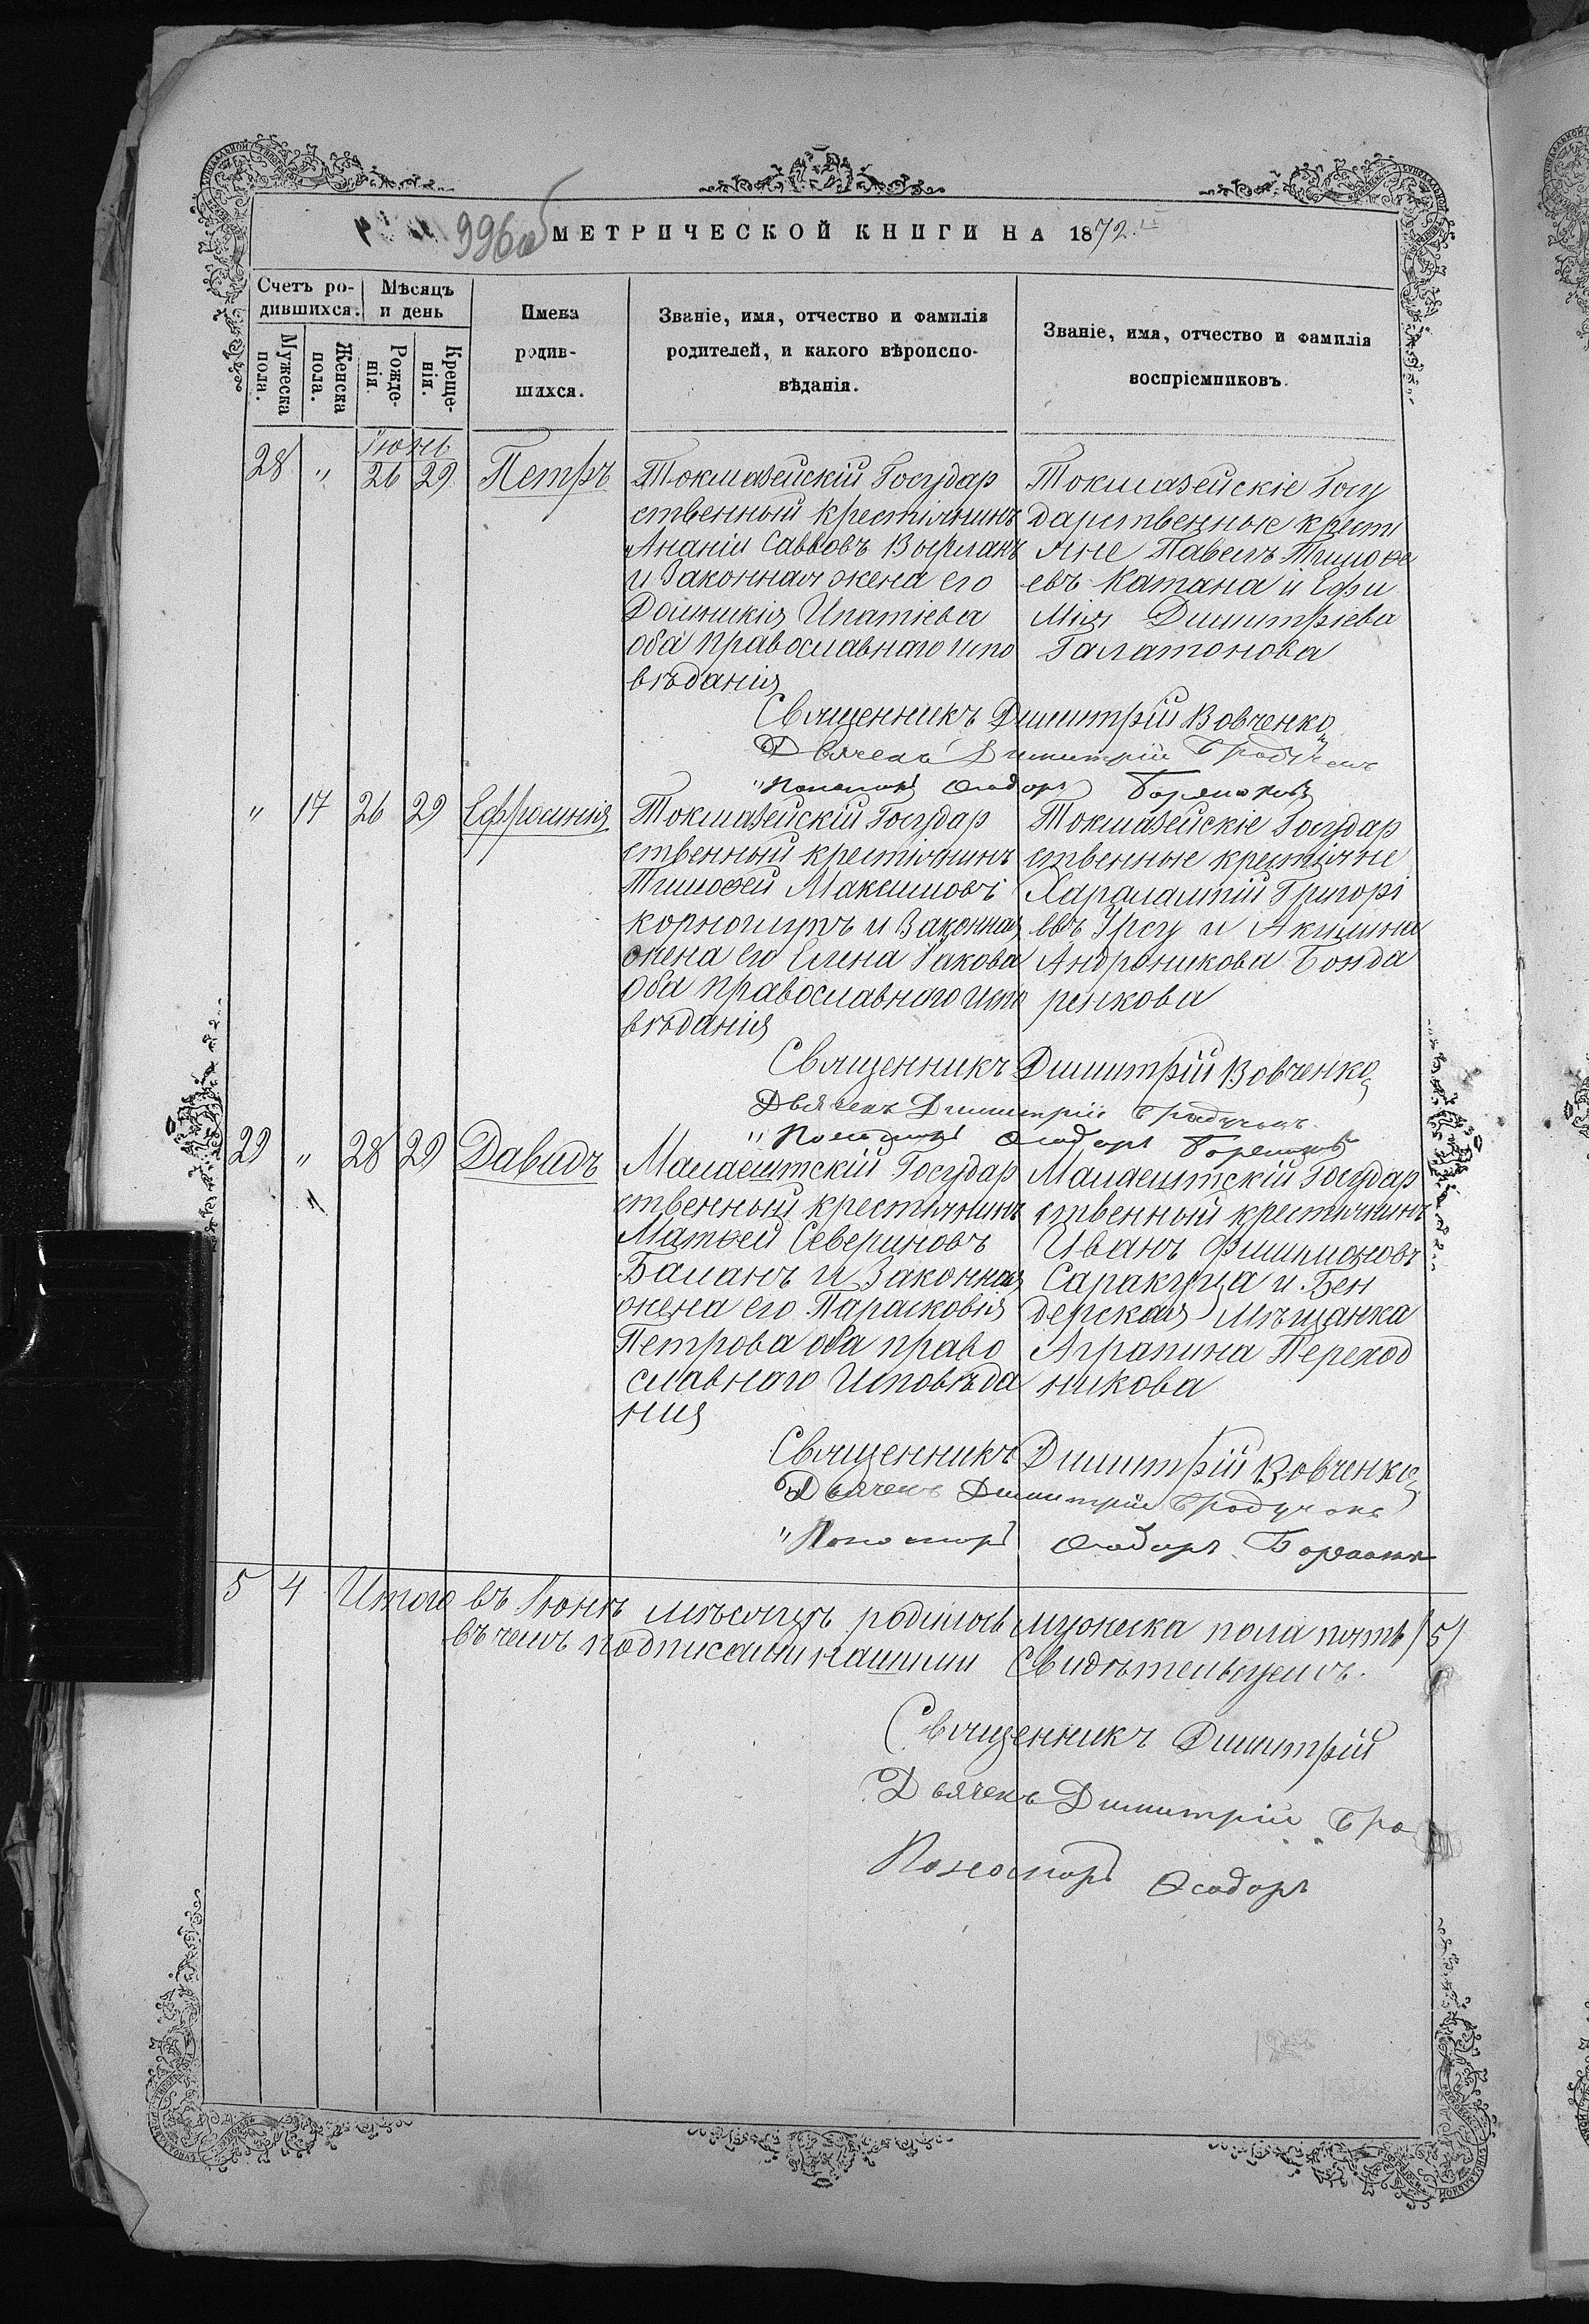 996об
МЕТРИЧЕСКОЙ КНИГИ НА 1872
Счетъ ро-
дившихся.
Мѣсяцъ
и день
Мужеска
пола.
Женска
пола.
Рожде-
нія.
Креще-
нія.
Имена
родив-
шихся.
Званіе, имя, отчество и фамилія
родителей, и какого вѣроиспо-
вѣданія.
Званіе, имя, отчество и фамилія
воспріемниковъ.
Іюнь
28 " 26 29 Петръ
Токмазейскій Государ
ственный крестіянинъ
Ананій Саввовъ
и Законная жена его
Домникія Ипатіева
оба православнаго испо
вѣданія
Токмазейскіе Госу
дарственные крест
яне Павелъ Тимофе
евъ Катана и Ефи
мія Димитріева
Галатонова
Священникъ Димитрій Вовченко
Дьячекъ Димитрій
"Пономарь Ѳеодоръ
" 17 26 29 Ефросинія
Токмазейскій Государ
ственный крестіянинъ
Тимофей Максимовъ
и Законная
жена его Елена Іакова
оба православнаго испо
вѣданія
Токмазейскіе Государ
ственные крестіяне
Харалампій Григорі
евъ Урсу и Акилина
Андроникова Бонда
ренкова
Священникъ Димитрій Вовченко
Дьячекъ Димитрій
"Пономарь Ѳеодоръ
29 " 28 29 Давидъ
Малаештскій Государ
ственный крестьянинъ
Матѳей Севериновъ
Баланъ и Законная
жена его Парасковія
Петрова оба право
славнаго Исповѣда
нія
Малаештскій Государ
ственный крестьянинъ
Иванъ Филимоновъ
Саракуца и Бен
дерская мѣщанка
Агрипина Переход
никова
Священникъ Димитрій Вовченко
Дьячекъ Димитрій
"Пономарь Ѳеодоръ
5 4 Итого въ Іюнѣ мѣсяцѣ родилось мужеска пола пять /5/
въ чемъ подписами нашими Свидѣтельствуемъ.
Священникъ Димитрій
Дьячекъ Димитрій Бро
Пономарь Ѳеодоръ